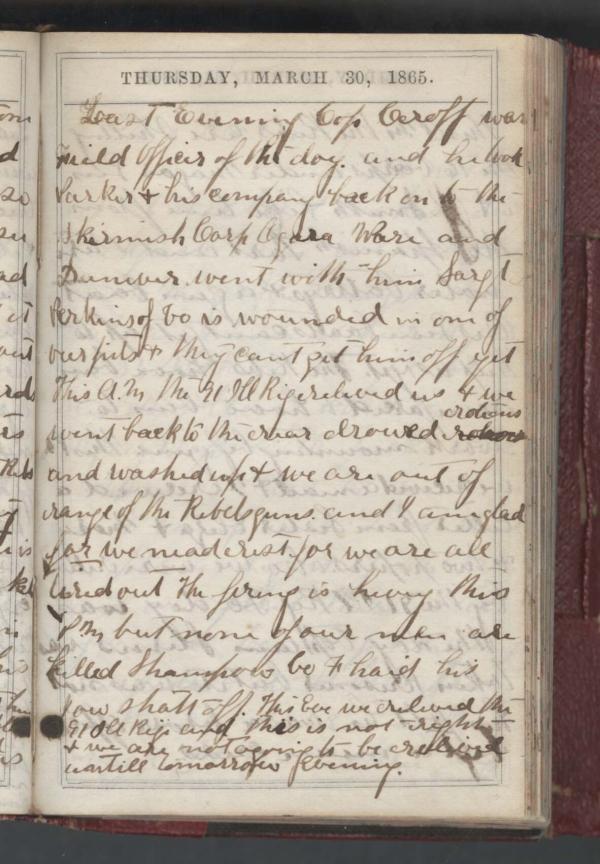 THURSDAY, MARCH 30, 1865.
Last Evening Cop Ceroff was
Feild Officer of the day. and he took
Parker & his company back on to the
Skirmish Corp Agara Ware and
Duniver went with him Sargt
Perkins of Co is wounded in one of
our pits & they cant get him off yet
This A.M the 91 Ill Rige relieved us & we
went back to the rear drowed rations
and washed up & we are out of
range of the Rebels guns. and I am glad
for we need rest. for we are all
tired out The firing is heavy this
P.M but none of our men are
killed Shampow Co F haid his
jow shatt off. This Eve we relieved the
91 Ill Rig and this is not right
& we are not agoing to be relieved
untill tomorrow Evening.